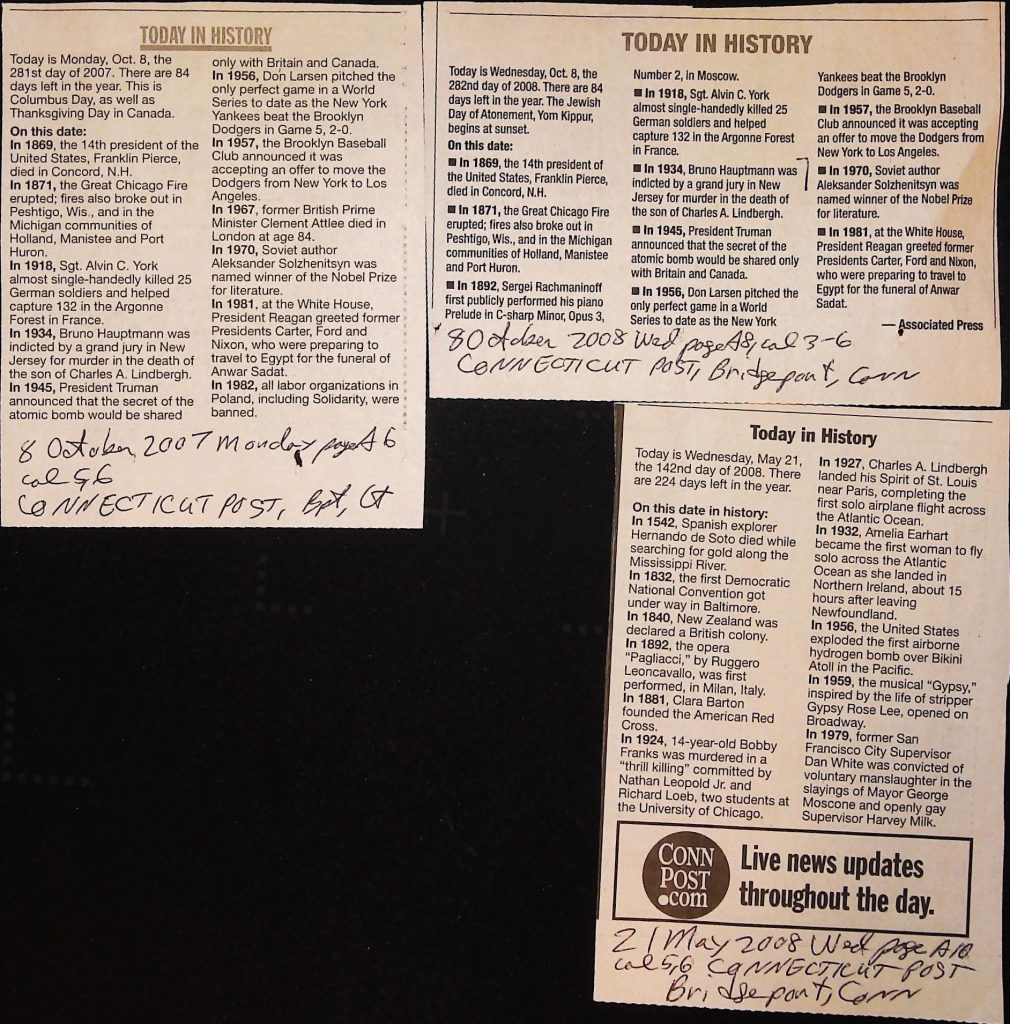 TODAY IN HISTORY
Today is Monday, Oct. 8, the
281st day of 2007. There are 84
days left in the year. This is
Columbus Day, as well as
Thanksgiving Day in Canada.
On this date:
In 1869, the 14th president of the
United States, Franklin Pierce,
died in Concord, N.H.
In 1871, the Great Chicago Fire
erupted; fires also broke out in
Peshtigo, Wis., and in the
Michigan communities of
Holland, Manistee and Port
Huron.
In 1918, Sgt. Alvin C. York
almost single-handedly killed 25
German soldiers and helped
capture 132 in the Argonne
Forest in France.
In 1934, Bruno Hauptmann was
indicted by a grand jury in New
Jersey for murder in the death of
the son of Charles A. Lindbergh.
In 1945, President Truman
announced that the secret of the
atomic bomb would be shared
only with Britain and Canada.
In 1956, Don Larsen pitched the
only perfect game in a World
Series to date as the New York
Yankees beat the Brooklyn
Dodgers in Game 5, 2-0.
In 1957, the Brooklyn Baseball
Club announced it was
accepting an offer to move the
Dodgers from New York to Los
Angeles.
In 1967, former British Prime
Minister Clement Attlee died in
London at age 84.
In 1970, Soviet author
Aleksander Solzhenitsyn was
named winner of the Nobel Prize
for literature.
In 1981, at the White House,
President Reagan greeted former
Presidents Carter, Ford and
Nixon, who were preparing to
travel to Egypt for the funeral of
Anwar Sadat.
In 1982, all labor organizations in
Poland, including Solidarity, were
banned.
8 October 2007 Monday page A6
col 5,6
CONNECTICUT POST, Bpt, Ct
TODAY IN HISTORY
Today is Wednesday, Oct. 8, the
282nd day of 2008. There are 84
days left in the year. The Jewish
Day of Atonement, Yom Kippur,
begins at sunset.
On this date:
■ In 1869, the 14th president of
the United States, Franklin Pierce,
died in Concord, N.H.
■ In 1871, the Great Chicago Fire
erupted; fires also broke out in
Peshtigo, Wis., and in the Michigan
communities of Holland, Manistee
and Port Huron.
■ In 1892, Sergei Rachmaninoff
first publicly performed his piano
Prelude in C-sharp Minor, Opus 3,
Number 2, in Moscow.
■ In 1918, Sgt. Alvin C. York
almost single-handedly killed 25
German soldiers and helped
capture 132 in the Argonne Forest
in France.
■ In 1934, Bruno Hauptmann was
indicted by a grand jury in New
Jersey for murder in the death of
the son of Charles A. Lindbergh.
■ In 1945, President Truman
announced that the secret of the
atomic bomb would be shared only
with Britain and Canada.
■ In 1956, Don Larsen pitched the
only perfect game in a World
Series to date as the New York
Yankees beat the Brooklyn
Dodgers in Game 5, 2-0.
■ In 1957, the Brooklyn Baseball
Club announced it was accepting
an offer to move the Dodgers from
New York to Los Angeles.
■ In 1970, Soviet author
Aleksander Solzhenitsyn was
named winner of the Nobel Prize
for literature.
■ In 1981, at the White House,
President Reagan greeted former
Presidents Carter, Ford and Nixon,
who were preparing to travel to
Egypt for the funeral of Anwar
Sadat.
— Associated Press
8 October 2008 Wed page A8, col 3-6
CONNECTICUT POST, Bridgeport, Conn
Today in History
Today is Wednesday, May 21,
the 142nd day of 2008. There
are 224 days left in the year.
On this date in history:
In 1542, Spanish explorer
Hernando de Soto died while
searching for gold along the
Mississippi River.
In 1832, the first Democratic
National Convention got
under way in Baltimore.
In 1840, New Zealand was
declared a British colony.
In 1892, the opera
"Pagliacci," by Ruggero
Leoncavallo, was first
performed, in Milan, Italy.
In 1881, Clara Barton
founded the American Red
Cross.
In 1924, 14-year-old Bobby
Franks was murdered in a
"thrill killing" committed by
Nathan Leopold Jr. and
Richard Loeb, two students at
the University of Chicago.
In 1927, Charles A. Lindbergh
landed his Spirit of St. Louis
near Paris, completing the
first solo airplane flight across
the Atlantic Ocean.
In 1932, Amelia Earhart
became the first woman to fly
solo across the Atlantic
Ocean as she landed in
Northern Ireland, about 15
hours after leaving
Newfoundland.
In 1956, the United States
exploded the first airborne
hydrogen bomb over Bikini
Atoll in the Pacific.
In 1959, the musical "Gypsy,"
inspired by the life of stripper
Gypsy Rose Lee, opened on
Broadway.
In 1979, former San
Francisco City Supervisor
Dan White was convicted of
voluntary manslaughter in the
slayings of Mayor George
Moscone and openly gay
Supervisor Harvey Milk.
CONN
POST
.com
Live news updates
throughout the day.
21 May 2008 Wed page A10
col 5,6 CONNECTICUT POST
Bridgeport, Conn